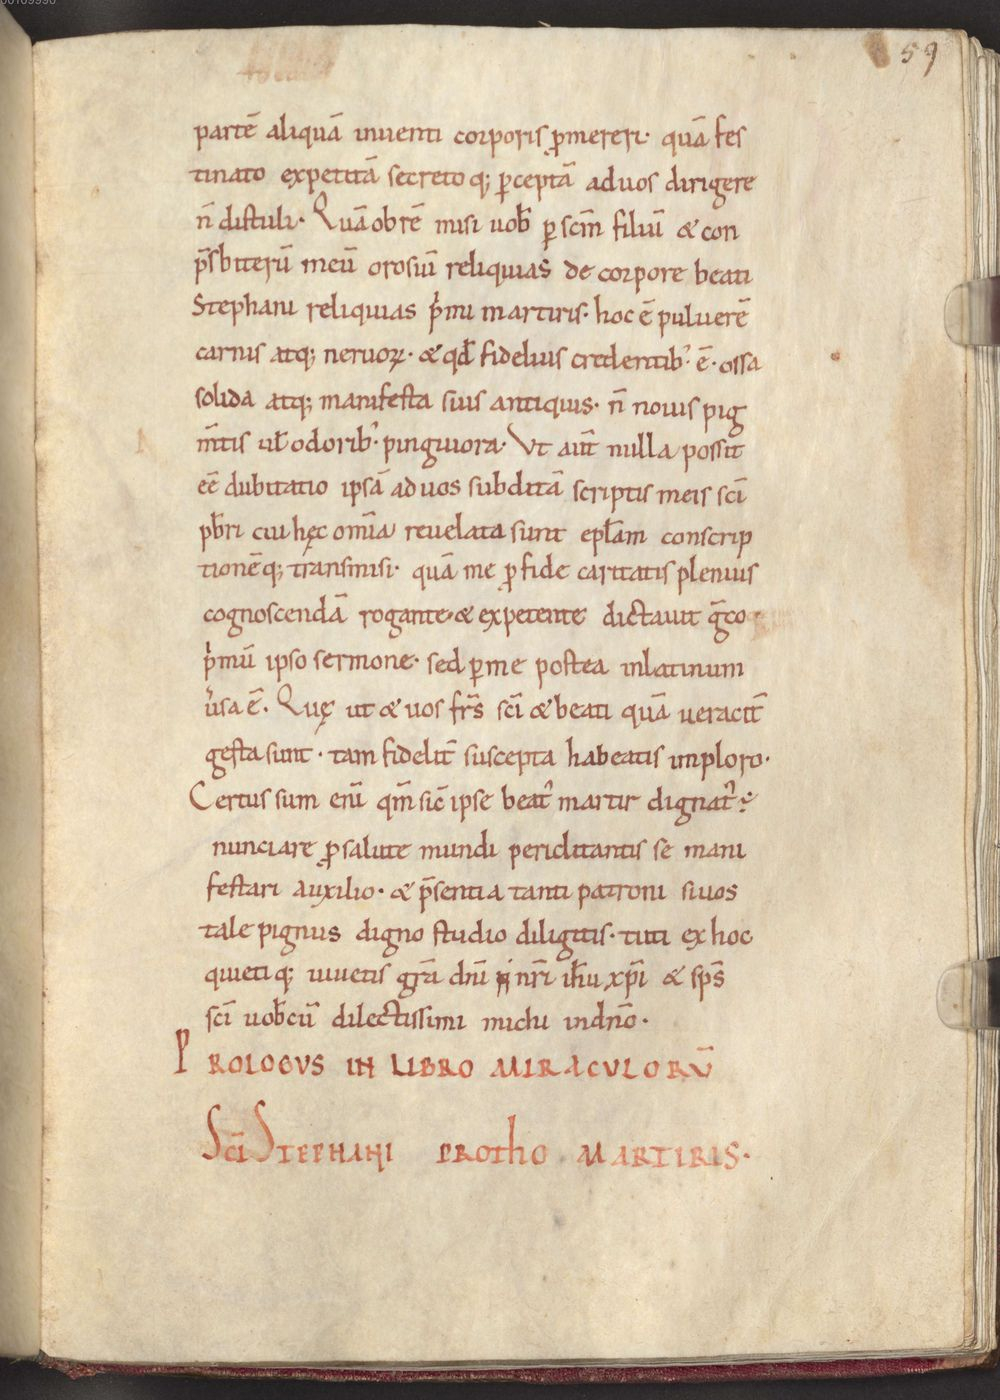 59
partē aliquā inuenti corporis ꝓmereri· quā fes
tinato expetitā secretoq; ꝑceptā aduos dirigere
n̄ distuli· Quā ob rē misi uob̄ ꝑ sc̄m filiū & con
p̄sbiterū meū orosiū reliquias de corpore beati
Stephani reliquias p̍mi martiris· hoc ē puluerē
carnis atq; neruoꝝ· & qđ fidelius credentib᾽ ē· ossa
solida atq; manifesta suis antiquis· n̄ nouis pig
m̄tis ul̄ odorib᾽ pinguiora· Vt aūt nulla possit
eē dubitatio ipsā ad uos subditā scriptis meis sc̄i
pb̄ri cui hęc om̄ia reuelata sunt epl̄am conscrip
tionēq; transmisi· quā me ꝓ fide caritatis plenius
cognoscendā rogante· & expetente dictauit ḡco
p̍mū ipso sermone· sed ꝑ me postea inlatinum
u̓sa ē· Quę ut & uos fr̄s sc̄i & beati quā ueracit̄
gesta sunt· tam fidelit̄ suscepta habeatis imploro·
Certus sum enī qm̄ sic̄ ipse beat᾽ martir dignat᾽ ē
nunciare ꝓ salute mundi periclitantis se mani
festari auxilio· & p̄sentia tanti patroni siuos
tale pignus digno studio diligitis· tuti ex hoc
quietiq; uiuetis gr̄a dn̄i nr̄i ih̄u xp̄i & sp̄s
sc̄i uob̄cū dilectissimi michi in dn̄o·
PROLOGVS IN LIBRO MIRACVLORV̄
Sc̄i STEPHANI PROThO MARTIRIS·